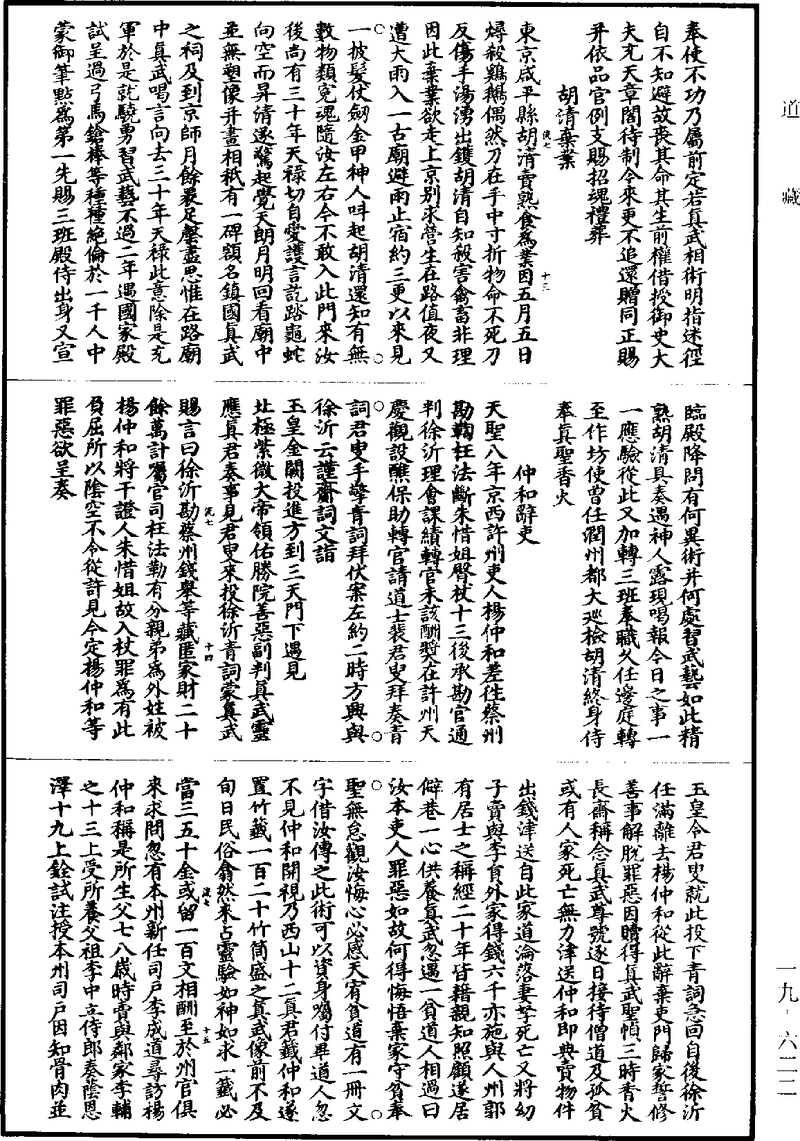 道藏
奉使不功乃屬前定若真武相術明指迷徑
自不知避故喪其命其生前權借授御史大
夫充天章閣待制令來更不追還贈同正賜
并依品官例支賜招魂禮葬
胡清棄業
流七 十三
東京咸平縣胡清賣熟食為業因五月五日
燖殺雞鵝偶然刀在手中寸折物命不死刀
反傷手湯湧出鑊胡清自知殺害禽畜非理
因此棄業欲走上京別求營生在路值夜又
遭大雨入一古廟避雨止宿約三更以來見
一披髮仗劒金甲神人呌起胡清還知有無
數物類寃魂隨汝左右今不敢入此門來汝
後尚有三十年天祿切自愛護言訖踏龜蛇
向空而昇清遂驚起覺天朗月明回看廟中
並無塑像并畫相秪有一碑額名鎮國真武
之祠及到京師月餘褁足罄盡思惟在路廟
中真武唱言向去三十年天祿此意除是充
軍於是就驍勇習武藝不過二年遇國家殿
試呈過弓馬鎗棒等種種絕倫於一千人中
蒙御筆點為第一先賜三班殿侍出身又宣
臨殿降問有何異術并何處習武藝如此精
熟胡清具奏遇神人露現唱報今日之事一
一應驗從此又加轉三班奉職久任邊庭轉
至作坊使曾任潤州都大廵檢胡清終身侍
奉真聖香火
仲和辭吏
天聖八年京西許州吏人楊仲和差徃蔡州
勘鞫枉法斷朱惜姐臀杖十三後承勘官通
判徐沂理會課績轉官未該酬奬在許州天
慶觀設醮保助轉官請道士裴君叟拜奏青
詞君叟手擎青詞拜伏案左約二時方興與
徐沂云謹齋詞文詣
玉皇金闕投進方到三天門下遇見
北極紫微大帝領佑勝院善惡副判真武靈
應真君奏事見君叟來投徐沂青詞蒙真武
流七 十四
賜言曰徐沂勘蔡州錢舉等藏匿家財二十
餘萬計囑官司枉法勒有分親弟為外姓被
楊仲和將干證人朱惜姐故入杖罪為有此
負屈所以陰空不令從許見今定楊仲和等
罪惡欲呈奏
玉皇令君叟就此投下青詞急回自後徐沂
任滿離去楊仲和從此辭棄吏門歸家誓修
善事解脫罪惡因贖得真武聖幀三時香火
長齋稱念真武尊號逐日接待僧道及孤貧
或有人家死亡無力津送仲和即典賣物件
出錢津送自此家道淪落妻孥死亡又將幼
子賣與李員外家得錢六千亦施與人州郭
有居士之稱經二十年皆藉親知照顧遂居
僻巷一心供養真武忽遇一貧道人相過曰
汝本吏人罪惡如故何得悔悟棄家守貧奉
聖無怠觀汝悔心必感天宥貧道有一冊文
字借汝傳之此術可以資身囑付畢道人忽
不見仲和開視乃西山十二真君籤仲和遂
置竹籤一百二十竹筒盛之真武像前不及
旬日民俗翕然來占靈驗如神如求一籤必
流七 十五
當三五十金或留一百文相酬至於州官俱
來求問忽有本州新任司戶李成道尋訪楊
仲和稱是所生父七八歲時賣與鄰家李輔
之十三上受所養父祖李中立侍郎奏蔭恩
澤十九上銓試注授本州司戶因知骨肉並
一九·六二二